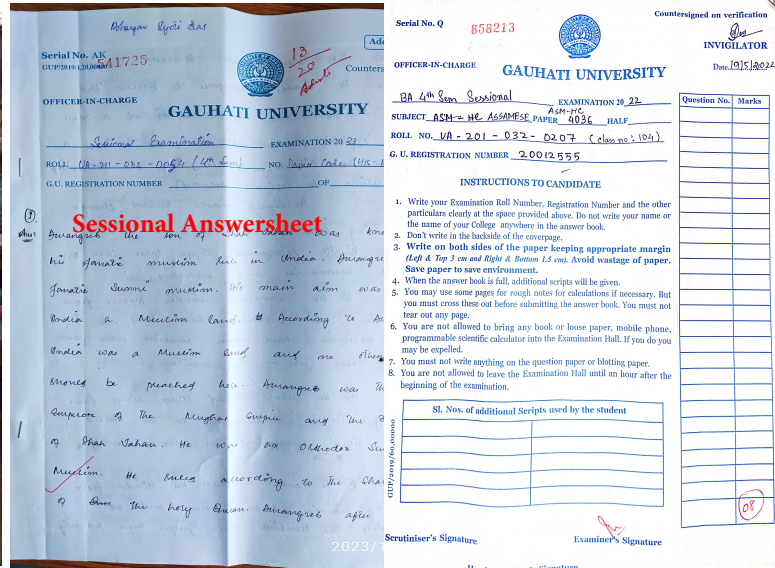 Serial No. AK
GUP/2019/1,20,000
541725
13
20
Add
Counters
OFFICER-IN-CHARGE
GAUHATI UNIVERSITY
Sessional Examination EXAMINATION 20 23
ROLL UA - 211 - 032 - 0054 (4th Sem) NO. Paper Code (HIS-
G.U. REGISTRATION NUMBER OF
Sessional Answersheet
Ans:
Aurangzeb the son of Shah Jahan was
his fanatic muslim rule in India.
fanatic Sunni muslim. His main aim was
India a Muslim land. According to
India was a Muslim land and no other
be preached here. Aurangzeb was
Emperor of the Mughal Empire and the
of Shah Jahan. He was an Orthodox
Muslim. He ruled according to the
of the holy Quran. Aurangzeb after
2023/1
Serial No. Q 858213
Countersigned on verification
INVIGILATOR
OFFICER-IN-CHARGE
Date. 19/5/2022
GAUHATI UNIVERSITY
BA 4th Sem Sessional EXAMINATION 20 22
ASM-HC
SUBJECT ASM-HC ASSAMESE PAPER 4036 HALF
ROLL NO. UA - 201 - 032 - 0207 (class no: 104)
G. U. REGISTRATION NUMBER 20012555
Question No. Marks
INSTRUCTIONS TO CANDIDATE
1. Write your Examination Roll Number, Registration Number and the other
particulars clearly at the space provided above. Do not write your name or
the name of your College anywhere in the answer book.
2. Don't write in the backside of the coverpage.
3. Write on both sides of the paper keeping appropriate margin
(Left & Top 3 cm and Right & Bottom 1.5 cm). Avoid wastage of paper.
Save paper to save environment.
4. When the answer book is full, additional scripts will be given.
5. You may use some pages for rough notes for calculations if necessary. But
you must cross these out before submitting the answer book. You must not
tear out any page.
6. You are not allowed to bring any book or loose paper, mobile phone,
programmable scientific calculator into the Examination Hall. If you do you
may be expelled.
7. You must not write anything on the question paper or blotting paper.
8. You are not allowed to leave the Examination Hall until an hour after the
beginning of the examination.
Sl. Nos. of additional Scripts used by the student
GUP/2019/60,00000
08
Scrutiniser's Signature
Examiner's Signature